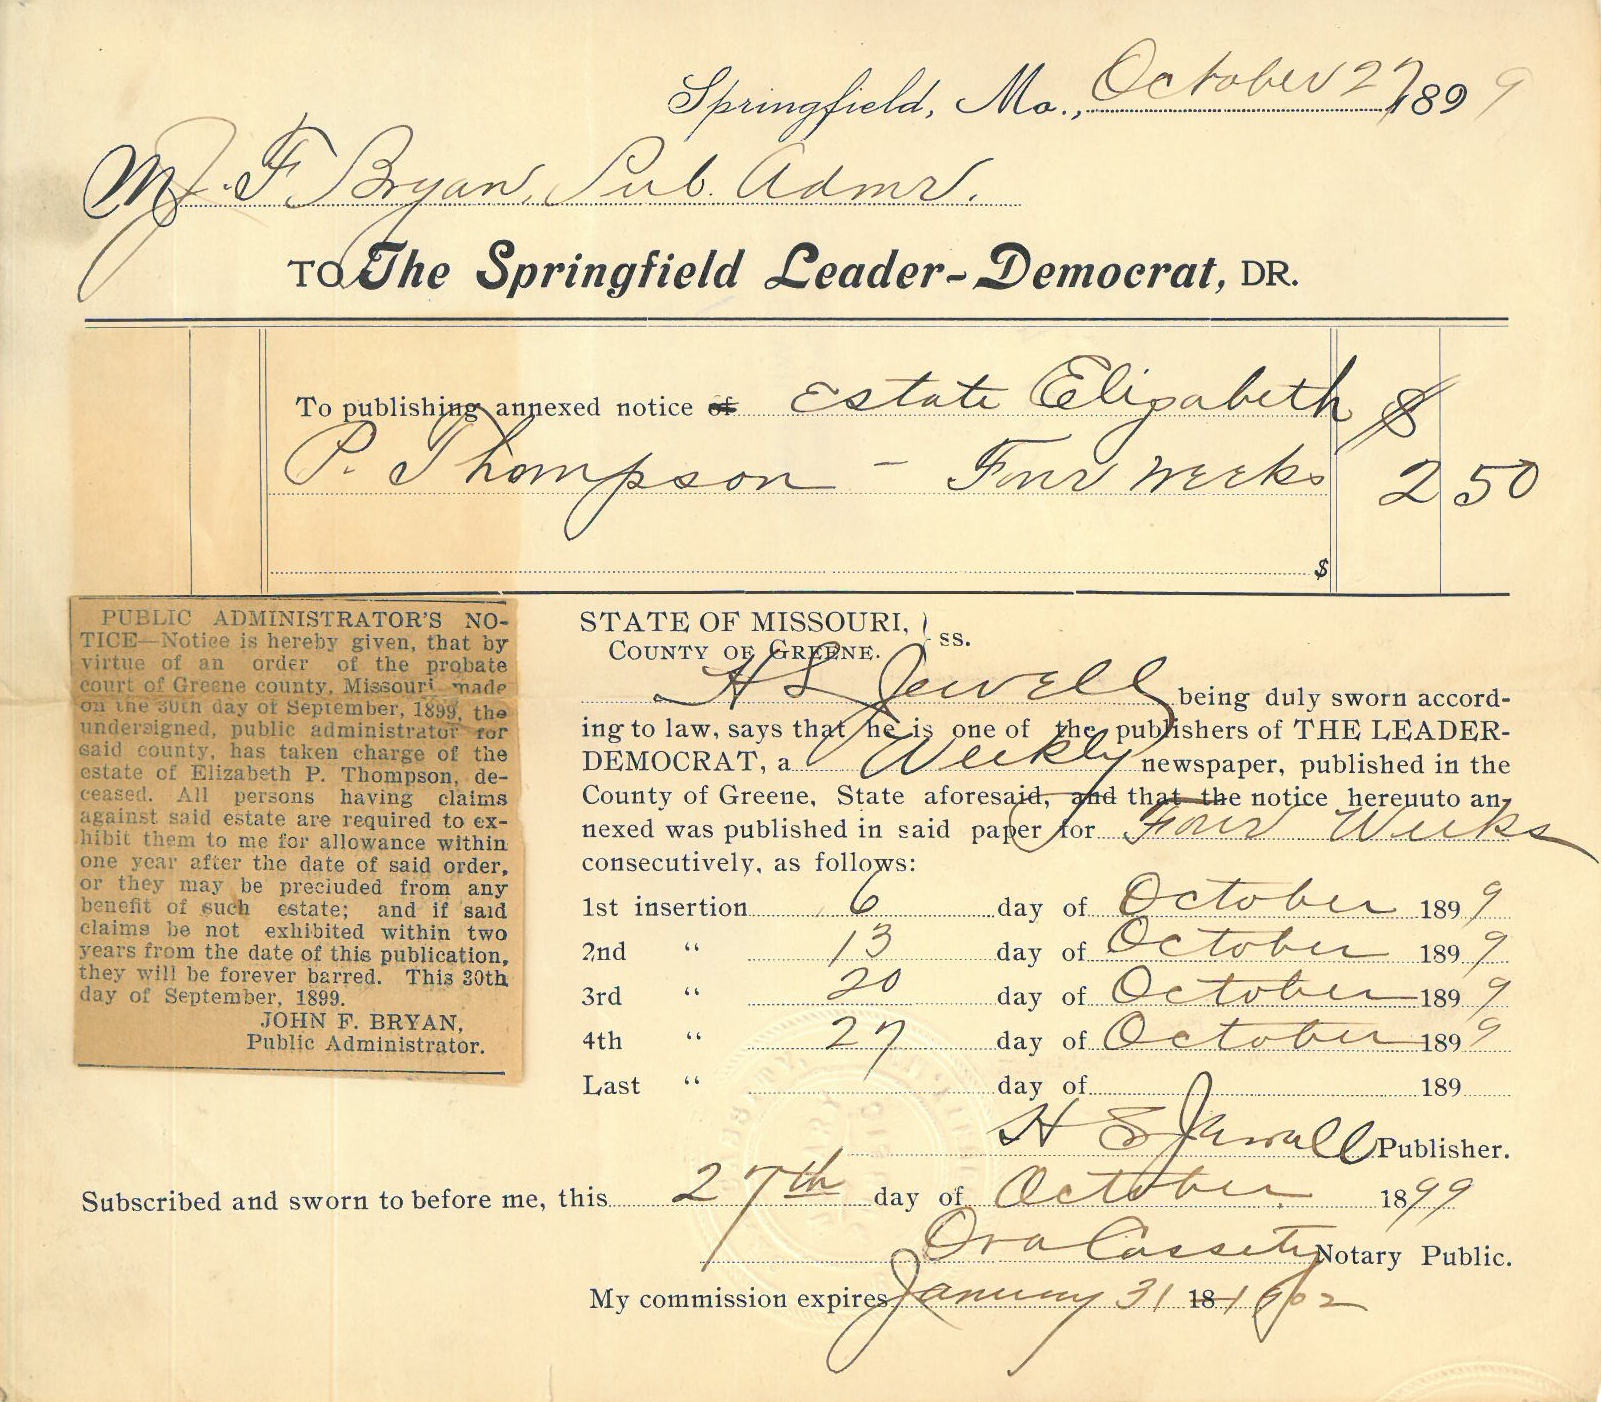 Springfield, Mo., October 27 1899
M J. F Bryan, Pub. Admr.
TO The Springfield Leader-Democrat, DR.
To publishing annexed notice of Estate Elizabeth $
P. Thompson - Four weeks 2 50
$
PUBLIC ADMINISTRATOR'S NO-
TICE—Notice is hereby given, that by
virtue of an order of the probate
court of Greene county, Missouri made
on the 30th day of September, 1899, the
undersigned, public administrator for
said county, has taken charge of the
estate of Elizabeth P. Thompson, de-
ceased. All persons having claims
against said estate are required to ex-
hibit them to me for allowance within
one year after the date of said order,
or they may be precluded from any
benefit of such estate; and if said
claims be not exhibited within two
years from the date of this publication,
they will be forever barred. This 30th
day of September, 1899.
JOHN F. BRYAN,
Public Administrator.
STATE OF MISSOURI, } ss.
COUNTY OF GREENE.
H S Jewell being duly sworn accord-
ing to law, says that he is one of the publishers of THE LEADER-
DEMOCRAT, a Weekly newspaper, published in the
County of Greene, State aforesaid, and that the notice hereunto an-
nexed was published in said paper for Four Weeks
consecutively, as follows:
1st insertion 6 day of October 1899
2nd “ 13 day of October 1899
3rd “ 20 day of October 1899
4th “ 27 day of October 1899
Last “ day of 189
H S Jewell Publisher.
Subscribed and sworn to before me, this 27th day of October 1899
Ora Cassety Notary Public.
My commission expires January 31 18 1902